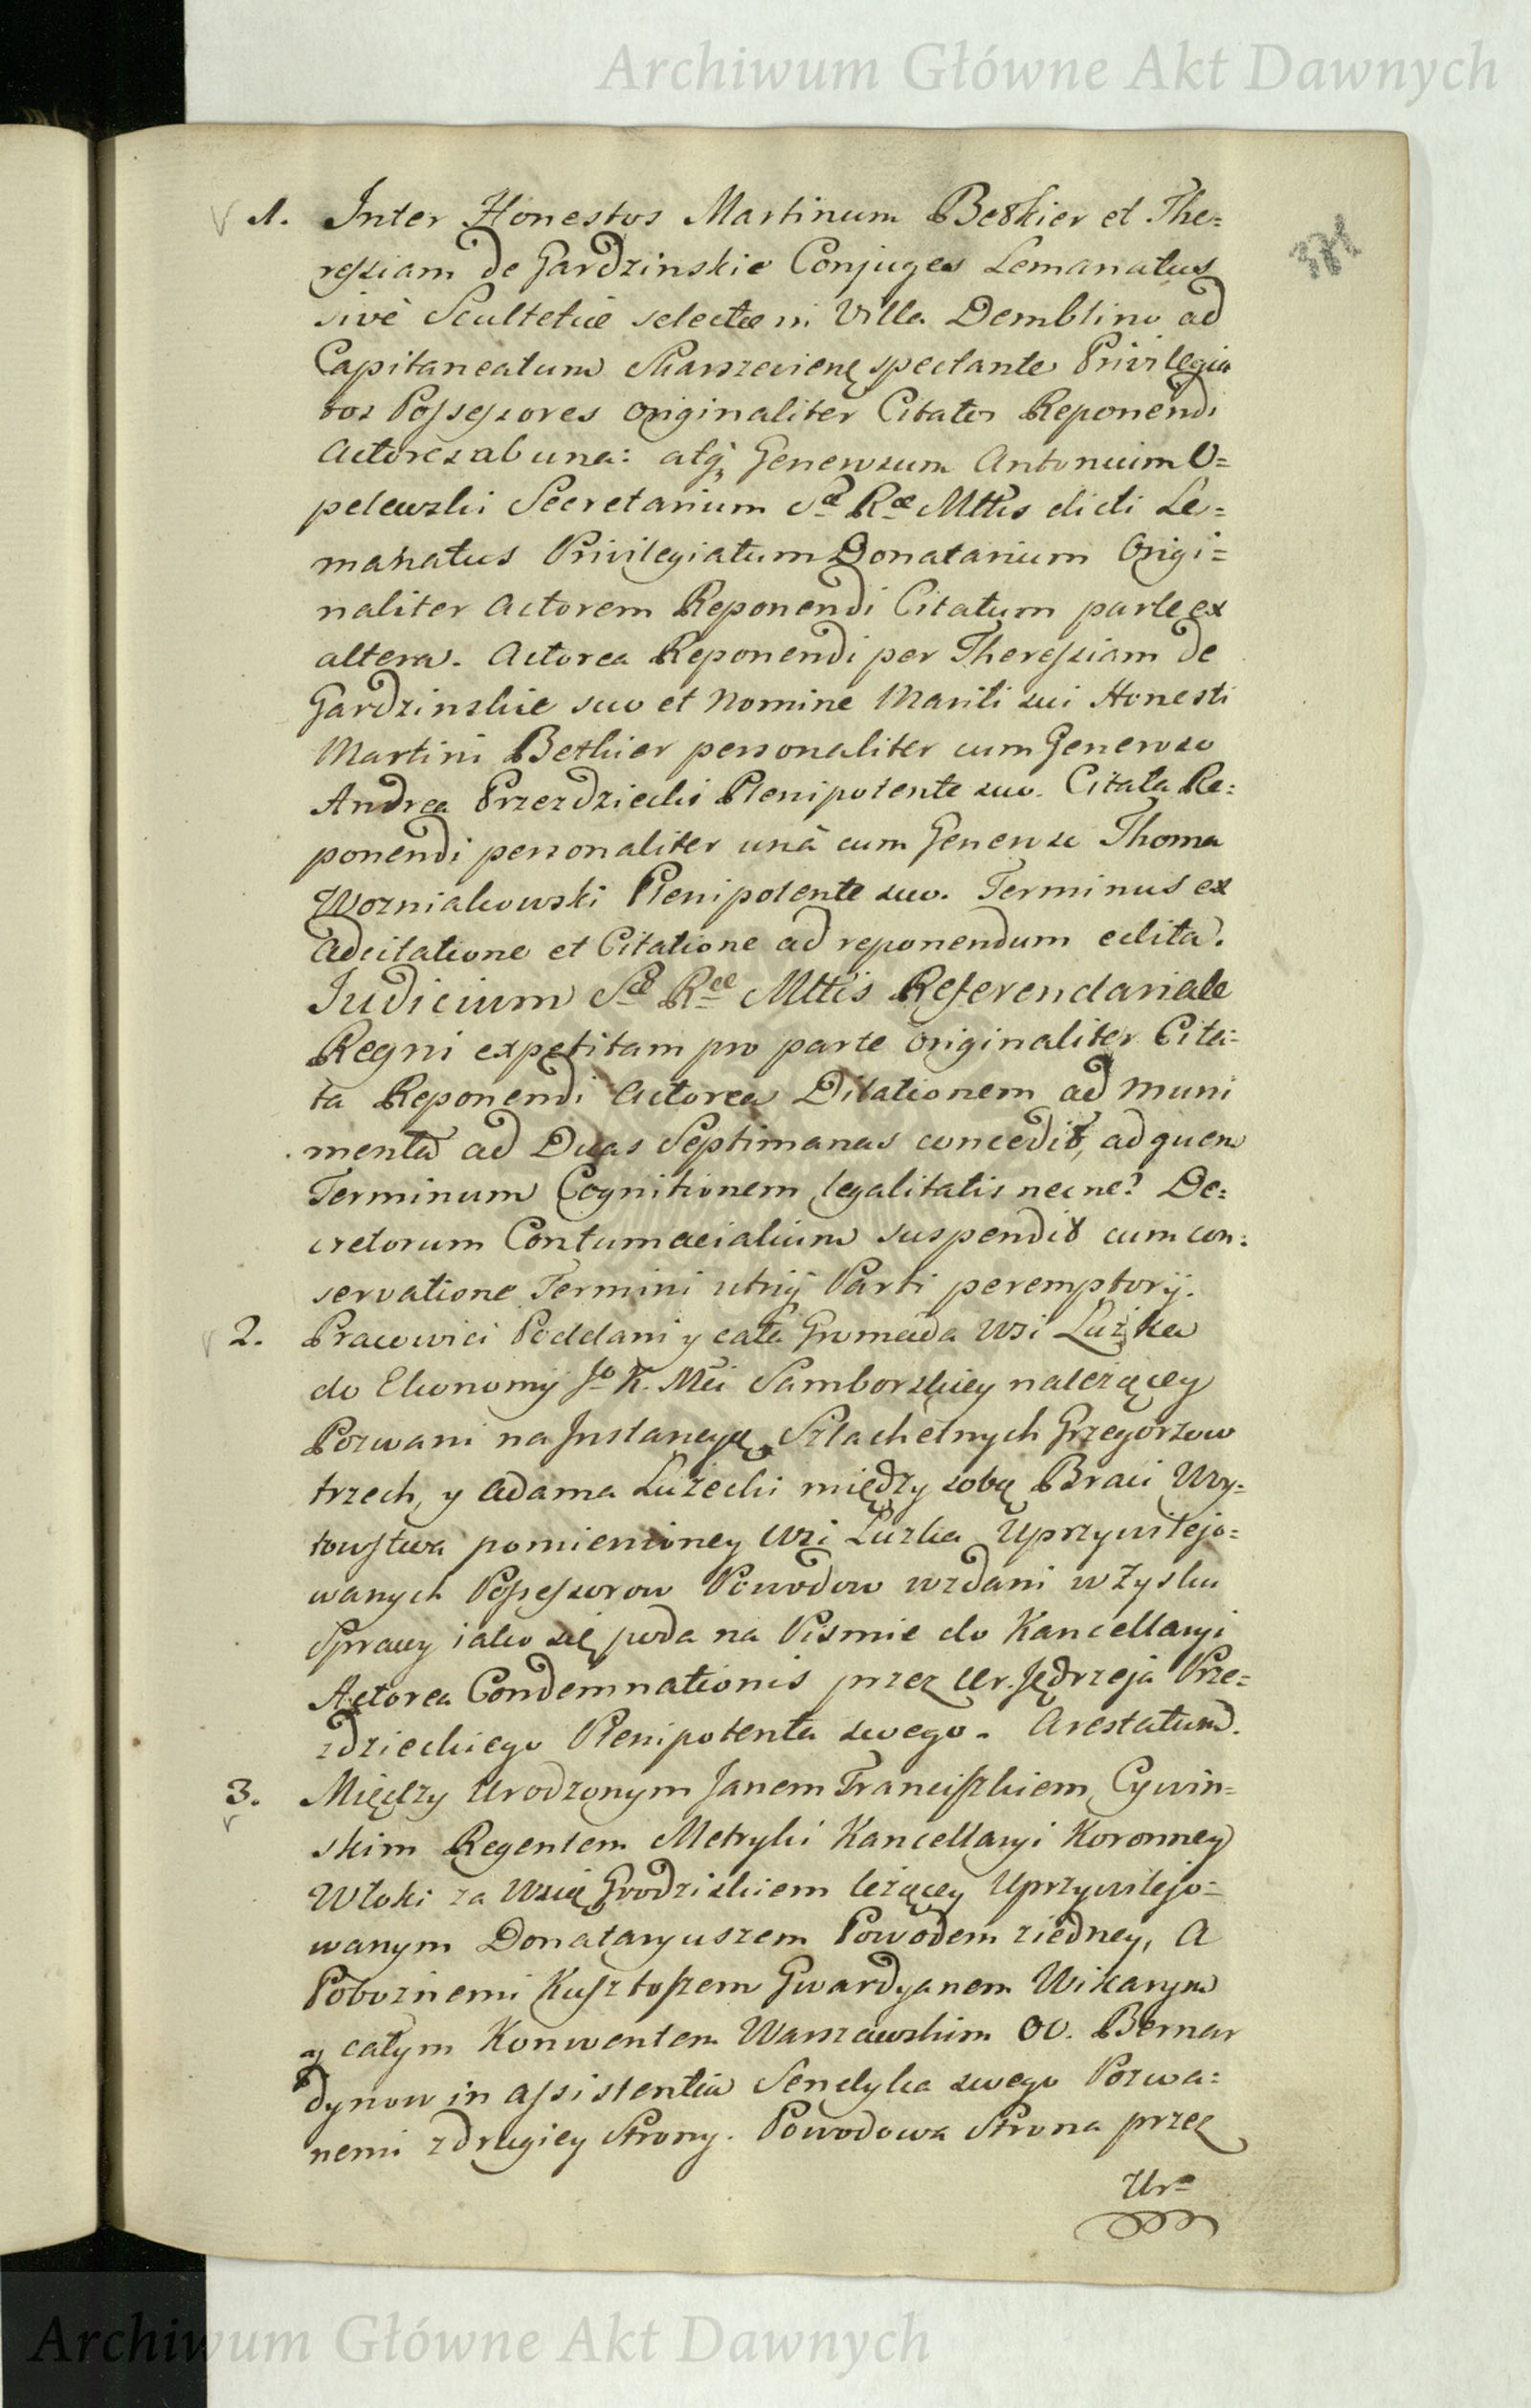 Archiwum Główne Akt Dawnych
371
1. Inter Honestos Martinum Bethier et The=
ressiam de Gardzinskie Conjuges Lemanatus
sivè Scultetiæ selectæ in Villa Demblino ad
Capitaneatum Skarszevien: spectante Privilegia
tos Possessores Originaliter Citatos Reponendi
Actores ab una: atq; Generosum Antonium O=
pelewski Secretarium Sæ Ræ Mttis dicti Le=
manatus Privilegiatum Donatarium Origi=
naliter Actorem Reponendi Citatum parte ex
altera. Actorea Reponendi per Theressiam de
Gardzinskie suo et Nomine Mariti sui Honesti
Martini Bethier personaliter cum Generoso
Andrea Przezdziecki Plenipotente suo. Citata Re=
ponendi personaliter unà cum Generoso Thoma
Wozniakowski Plenipotente suo. Terminus ex
Adcitatione et Citatione ad reponendum edita.
Judicium Sæ Ræ Mttis Referendariale
Regni expetitam pro parte Originaliter Cita=
ta Reponendi Actorea Dilationem ad Muni
menta ad Duas Septimanas concedit, ad quem
Terminum Cognitionem legalitatis necne? De=
cretorum Contumacialium suspendit cum con=
servatione Termini utriq; Parti peremptorij.
2. Pracowici Poddani y cała Gromada Wsi Łużka
do Ekonomij Jo K. Mci Samborskiey należącey
Pozwani na Instancyą Szlachetnych Grzegorzow
trzech, y Adama Łużecki między sobą Braci Woy=
towstwa pomienioney Wsi Łużka Uprzywilejo=
wanych Possessorow Powodow wzdani w Zysku
Sprawy iako się poda na Pismie do Kancellaryi
Actorea Condemnationis przez Ur. Jędrzeja Prze=
zdzieckiego Plenipotenta swego. Arestatum.
3. Między Urodzonym Janem Franciszkiem Cywin=
skim Regentem Metryki Kancellaryi Koronney
Włoki za Wsią Grodziskiem leżącey Uprzywilejo=
wanym Donataryuszem Powodem ziedney, A
Pobożnemi Kusztoszem Gwardyanem Wikarym
y całym Konwentem Warszawskim OO. Bernar
dynow in assistentia Sendyka swego Pozwa=
nemi z drugiey Strony. Powodowa Strona przez
Ur=
Archiwum Główne Akt Dawnych